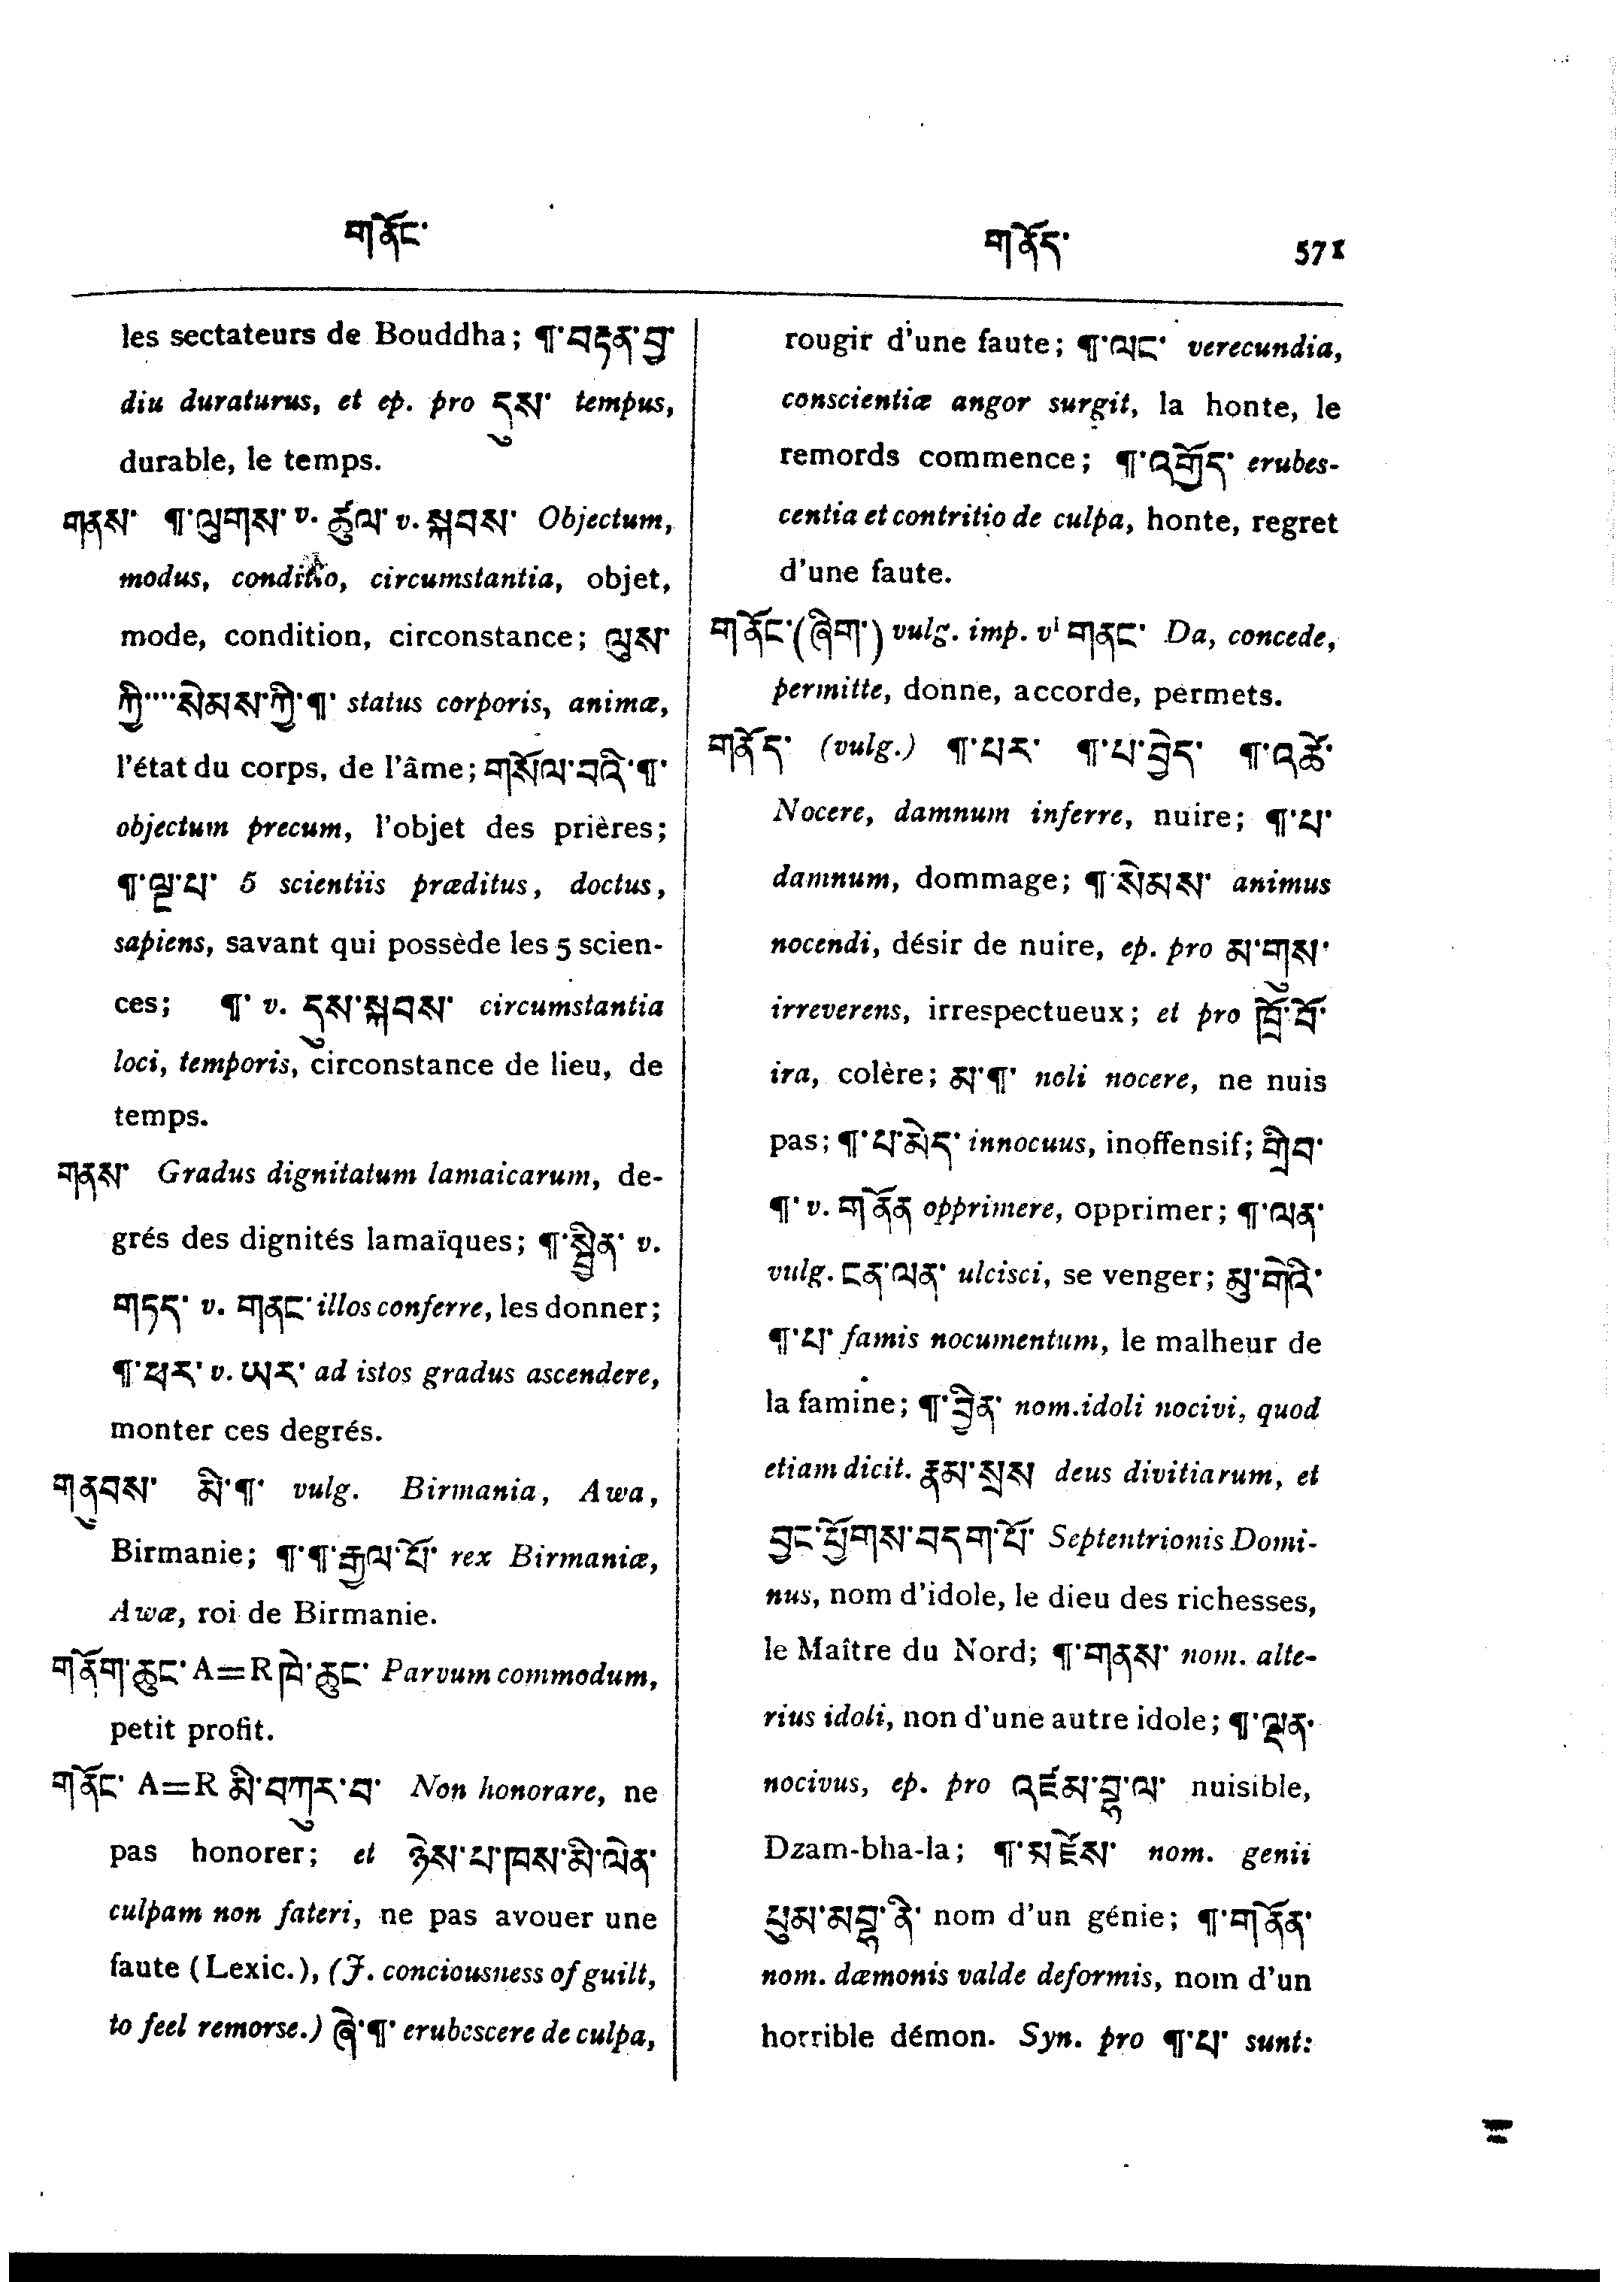 གནོང་
གནོད་ 571
les sectateurs de Bouddha; ¶་བརྟན་བྱ་
diu duraturus, et ep. pro དུས་ tempus,
durable, le temps.
གནས་ ¶་ལུགས་ v. ཚུལ་ v. སྐབས་ Objectum,
modus, conditio, circumstantia, objet,
mode, condition, circonstance; ལུས་
ཀྱི་····སེམས་ཀྱི་¶་ status corporis, animæ,
l'état du corps, de l'âme; གསོལ་བའི་¶་
objectum precum, l'objet des prières;
¶་ལྔ་པ་ 5 scientiis præditus, doctus,
sapiens, savant qui possède les 5 scien-
ces; ¶་ v. དུས་སྐབས་ circumstantia
loci, temporis, circonstance de lieu, de
temps.
གནས་ Gradus dignitatum lamaicarum, de-
grés des dignités lamaïques; ¶་སྦྱིན་ v.
གཏད་ v. གནང་ illos conferre, les donner;
¶་ཕར་ v. ཡར་ ad istos gradus ascendere,
monter ces degrés.
གནུབས་ མི་¶་ vulg. Birmania, Awa,
Birmanie; ¶་¶་རྒྱལ་པོ་ rex Birmaniæ,
Awæ, roi de Birmanie.
གནོག་ཆུང་ A=R ཁེ་ཆུང་ Parvum commodum,
petit profit.
གནོང་ A=R མི་བཀུར་བ་ Non honorare, ne
pas honorer; et ཉེས་པ་ཁས་མི་ལེན་
culpam non fateri, ne pas avouer une
faute (Lexic.), (J. conciousness of guilt,
to feel remorse.) ཞེ་¶་ erubescere de culpa,
rougir d'une faute; ¶་ལང་ verecundia,
conscientiæ angor surgit, la honte, le
remords commence; ¶་འགྱོད་ erubes-
centia et contritio de culpa, honte, regret
d'une faute.
གནོང་(ཞིག་) vulg. imp. vⁱ གནང་ Da, concede,
permitte, donne, accorde, permets.
གནོད་ (vulg.) ¶་པར་ ¶་པ་བྱེད་ ¶་འཚེ་
Nocere, damnum inferre, nuire; ¶་པ་
damnum, dommage; ¶་སེམས་ animus
nocendi, désir de nuire, ep. pro མ་གུས་
irreverens, irrespectueux; et pro ཁྲོ་བོ་
ira, colère; མ་¶་ noli nocere, ne nuis
pas; ¶་པ་མེད་ innocuus, inoffensif; གྲིབ་
¶་ v. གནོན opprimere, opprimer; ¶་ལན་
vulg. ངན་ལན་ ulcisci, se venger; མུ་གེའི་
¶་པ་ famis nocumentum, le malheur de
la famine; ¶་བྱིན་ nom. idoli nocivi, quod
etiam dicit. རྣམ་སྲས deus divitiarum, et
བྱང་ཕྱོགས་བདག་པོ་ Septentrionis Domi-
nus, nom d'idole, le dieu des richesses,
le Maître du Nord; ¶་གནས་ nom. alte-
rius idoli, non d'une autre idole; ¶་ལྡན་
nocivus, ep. pro འཛམ་བྷ་ལ་ nuisible,
Dzam-bha-la; ¶་མཛེས་ nom. genii
ཕུམ་མབྷ་ནི་ nom d'un génie; ¶་གནོན་
nom. dæmonis valde deformis, nom d'un
horrible démon. Syn. pro ¶་པ་ sunt: